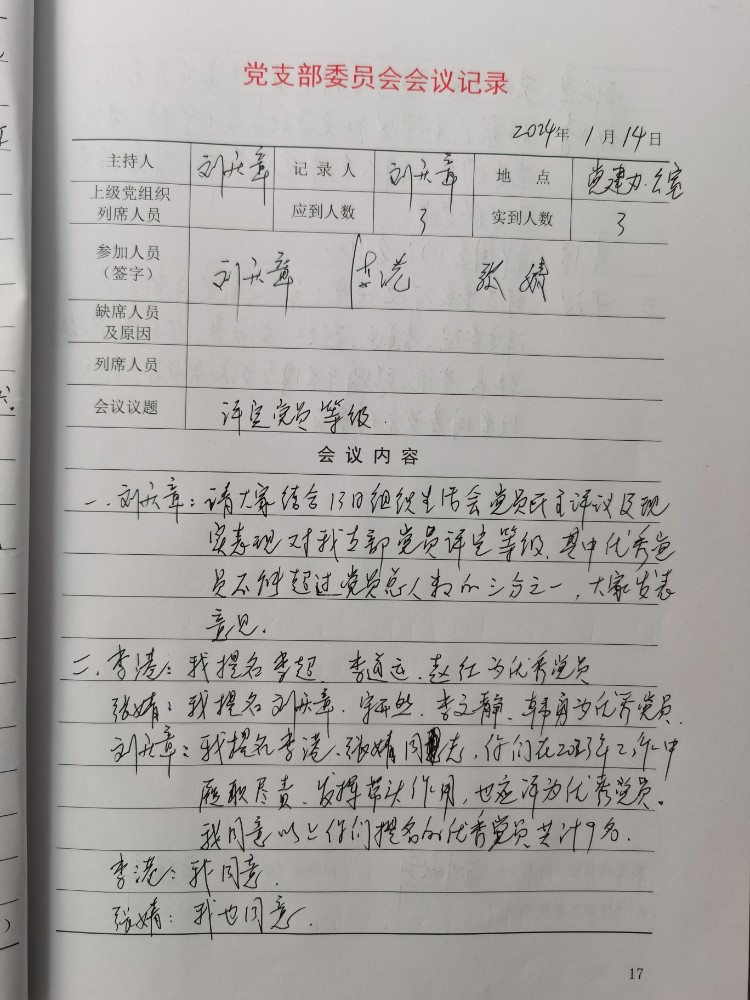 党支部委员会会议记录
2024年 1月14日
主持人 刘庆章 记录人 刘庆章 地点 党建办公室
上级党组织列席人员 应到人数 3 实到人数 3
参加人员(签字) 刘庆章 李港 张婧
缺席人员及原因
列席人员
会议议题 评定党员等级.
会议内容
一.刘庆章:请大家结合13日组织生活会党员民主评议及现
实表现对我支部党员评定等级.其中优秀党
员不能超过党员总人数的三分之一,大家发表
意见.
二.李港:我提名李超.李道远.赵红为优秀党员
张婧:我提名刘庆章.宋开然.李文静.韩勇为优秀党员.
刘庆章:我提名李港.张婧同志,你们在2023年工作中
履职尽责.发挥带头作用,也应评为优秀党员。
我同意以上你们提名的优秀党员共计9名.
李港:我同意.
张婧:我也同意.
17